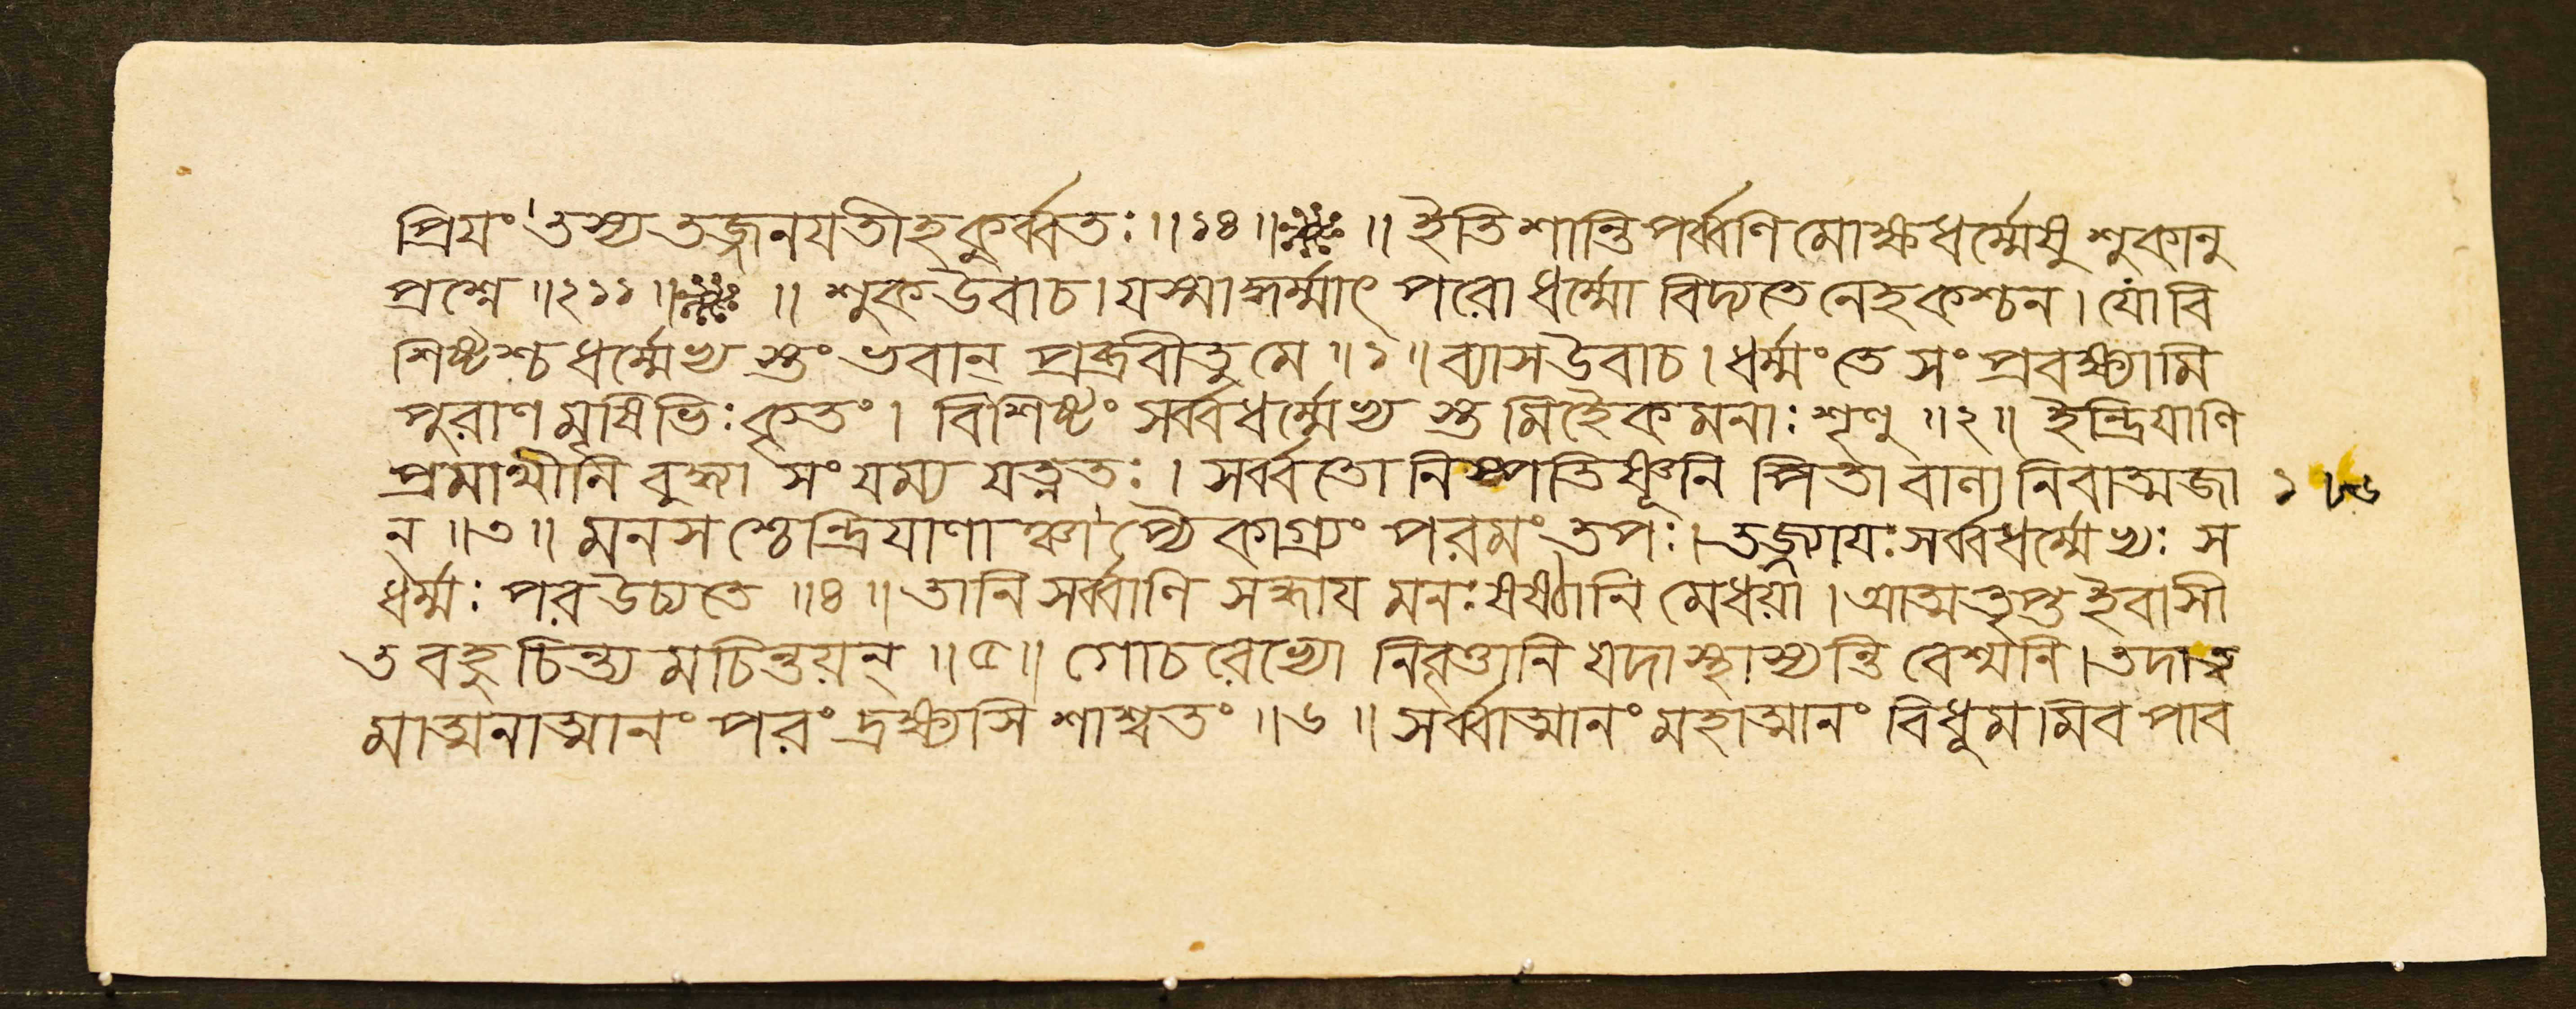 প্রিযং তস্য তজ্জনযতীহ কুর্ব্বতঃ ॥ ১৪ ॥ ॥ ইতি শান্তিপর্ব্বণি মোক্ষধর্ম্মেষু শুকানু
প্রশ্নে ॥ ২১১ ॥ ॥ শুক উবাচ । যস্মাদ্ধর্ম্মাৎ পরো ধর্ম্মো বিদ্যতে নেহ কশ্চন । যো বি
শিষ্টশ্চ ধর্ম্মেভ্য স্তং ভবান্ প্রব্রবীতু মে ॥ ১ ॥ ব্যাস উবাচ । ধর্ম্মং তে সং প্রবক্ষ্যামি
পুরাণমৃষিভিঃ কৃতং । বিশিষ্টং সর্ব্বধর্ম্মেভ্য স্তমিহৈকমনাঃ শৃণু ॥ ২ ॥ ইন্দ্রিযাণি
প্রমাথীনি বুদ্ধ্যা সংযম্য যত্নতঃ । সর্ব্বতো নিষ্পতিষ্ণূনি পিতা বালানিবাত্মজা ১৮৬
ন ॥ ৩ ॥ মনসশ্চেন্দ্রিযাণাঞ্চাপ্যৈকাগ্র্যং পরমং তপঃ । তজ্জ্যাযঃ সর্ব্বধর্ম্মেভ্যঃ স
ধর্ম্মঃ পর উচ্যতে ॥ ৪ ॥ তানি সর্ব্বাণি সন্ধায মনঃষষ্ঠানি মেধয়া । আত্মতৃপ্ত ইবাসী
ত বহু চিন্ত্যমচিন্তয়ন্ ॥ ৫ ॥ গোচরেভ্যো নিবৃত্তানি যদা স্থাস্যন্তি বেশ্মনি । তদাত্ব
মাত্মনাত্মানং পরং দ্রক্ষ্যসি শাশ্বতং ॥ ৬ ॥ সর্ব্বাত্মানং মহাত্মানং বিধূমমিব পাব